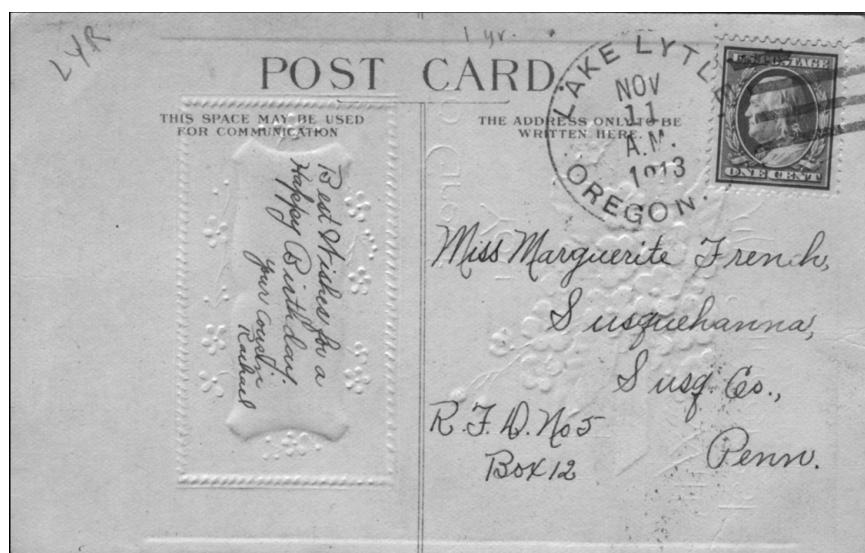 LYR
1 yr.
POST CARD
THIS SPACE MAY BE USED
FOR COMMUNICATION
THE ADDRESS ONLY TO BE
WRITTEN HERE.
LAKE LYTLE
NOV
11
A.M.
1913
OREGON.
ONE CENT
Best Wishes for a
Happy Birthday.
your cousin
Rachael
Miss Marguerite French,
Susquehanna,
Susq. Co.,
R.F.D. No 5
Box 12
Penn.